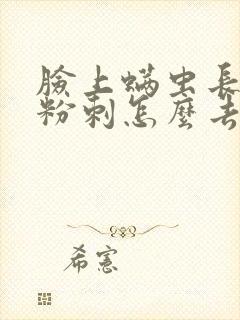 臉上螨虫長
粉刺怎麼去
希憲